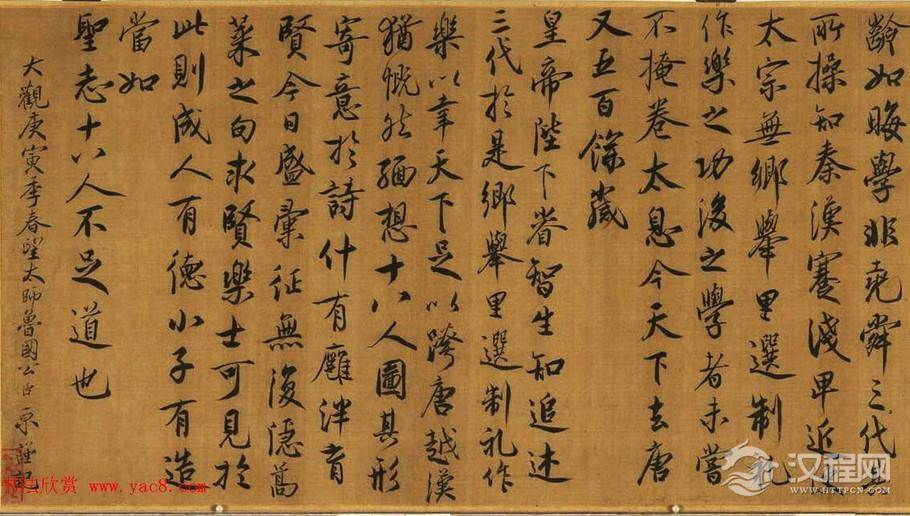 齡如晦學非堯舜三代之
所操知秦漢蹇淺卑近
太宗無鄉舉里選制礼
作樂之功後之學者未嘗
不掩卷太息今天下去唐
又五百餘歲
皇帝陛下睿智生知追述
三代於是鄉舉里選制礼作
樂以幸天下足以跨唐越漢
猶慨然緬想十八人圖其形
寄意於詩什有廱泮育
賢今日盛彙征無復隱蒿
萊之句求賢樂士可見於
此則成人有德小子有造
當如
聖志十八人不足道也
大觀庚寅季春望太師魯國公臣京謹記
书法欣赏 www.yac8.com
汉程网
HTTPCN.COM